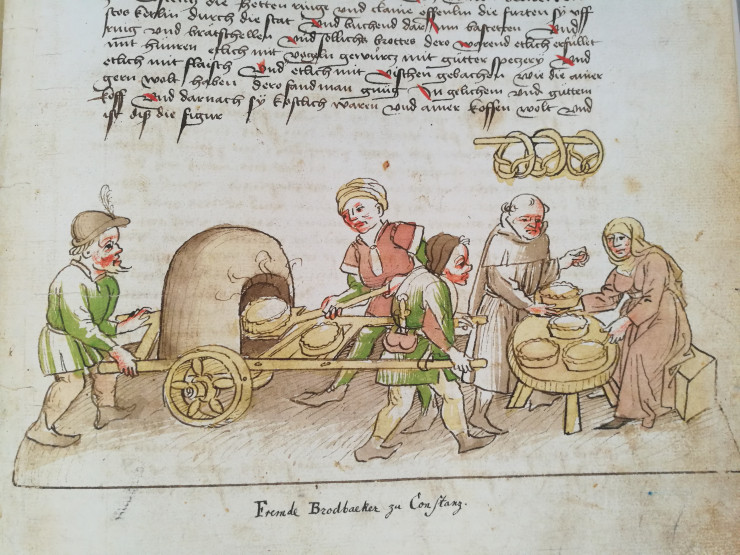 die bretten ringe vnd claine offenlin die fürten sy vff
stos karlin durch die stat Vnd buchend dar Inn bastetten Vnd
ring vnd bratschellen Vnd söllichs brottes dero warend etlich erfüllet
mit hünren etlich mit vogeln gewürtz mit gutter spetzery Vnd
etlich mit flaisch Vnd etlich mit vischen gebachen wie die ainer
gern wolt haben dero fand man gnug In gelichem vnd guttem
koff Vnd darnach sy kostlich waren vnd ainer koffen wolt vnd
ist diß die figur
Fremde Brodbaeker zu Constanz.